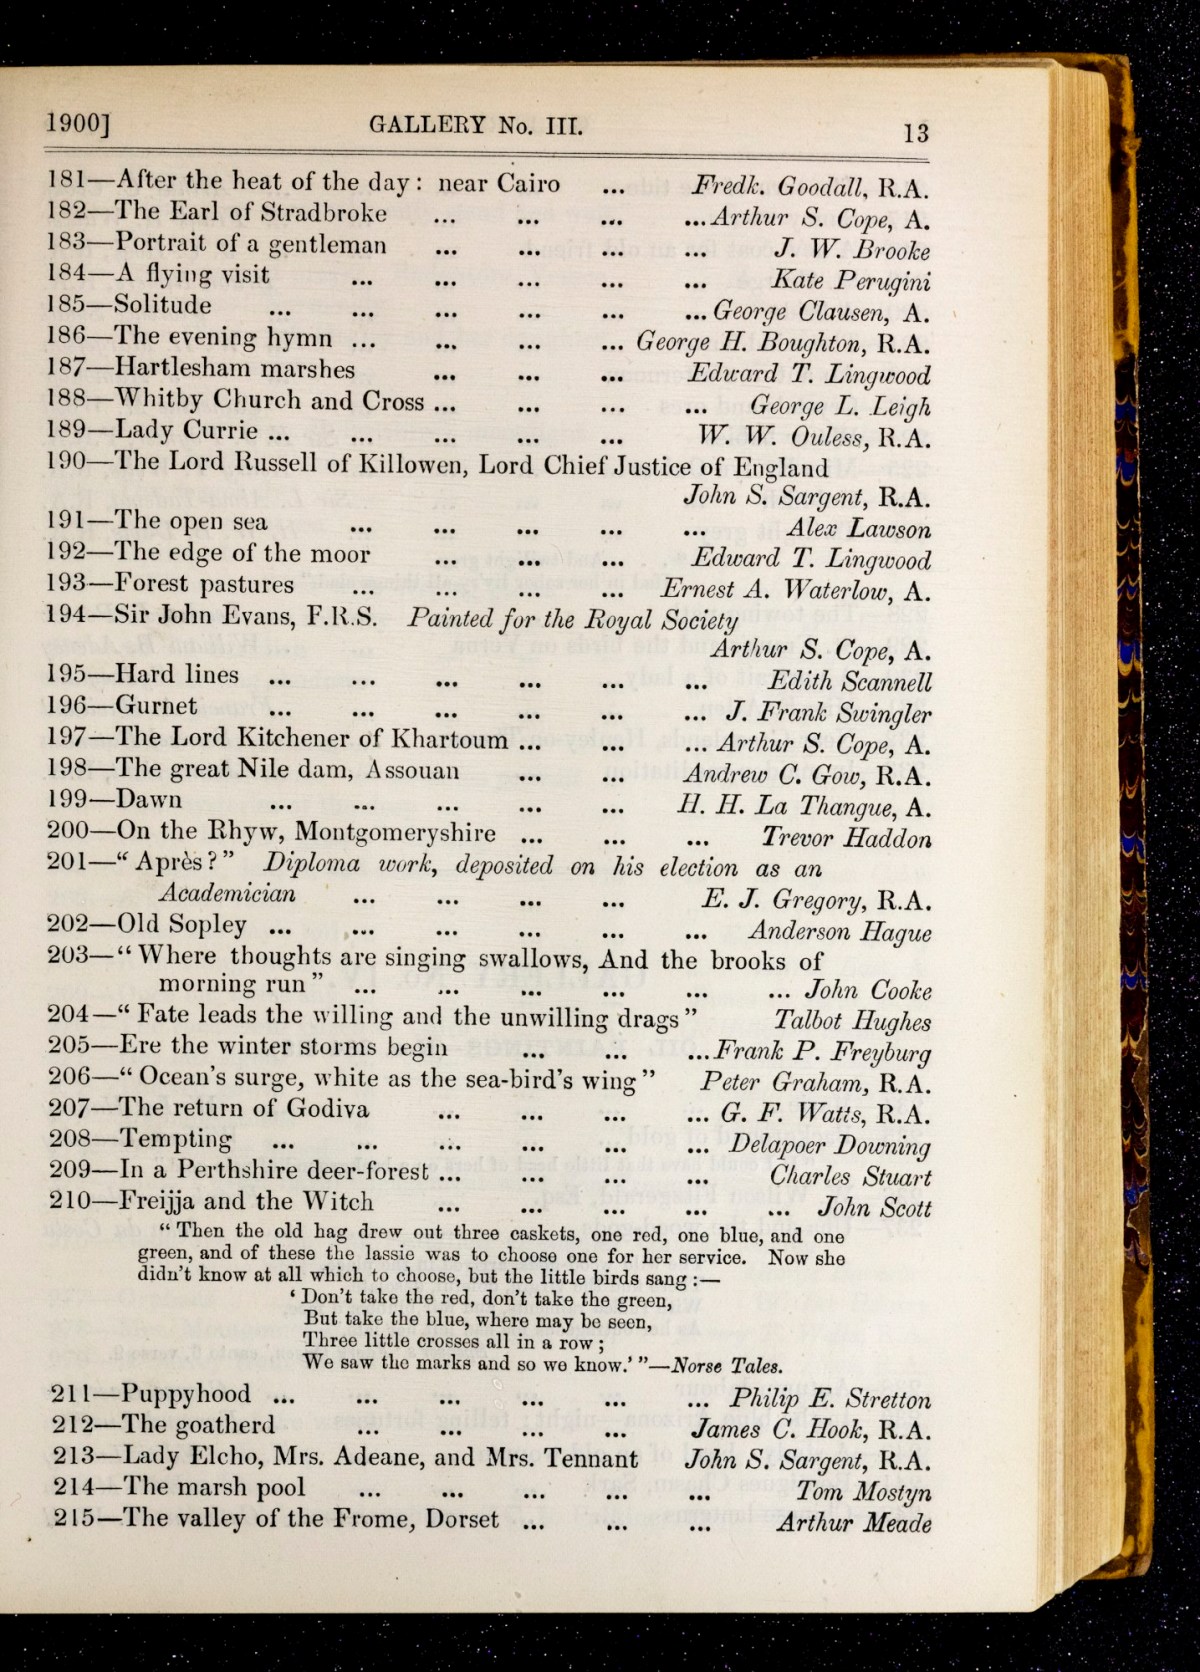 1900] GALLERY No. III. 13
181—After the heat of the day: near Cairo ... Fredk. Goodall, R.A.
182—The Earl of Stradbroke ... ... ... ... Arthur S. Cope, A.
183—Portrait of a gentleman ... ... ... ... J. W. Brooke
184—A flying visit ... ... ... ... ... Kate Perugini
185—Solitude ... ... ... ... ... ... George Clausen, A.
186—The evening hymn ... ... ... ... George H. Boughton, R.A.
187—Hartlesham marshes ... ... ... Edward T. Lingwood
188—Whitby Church and Cross ... ... ... ... George L. Leigh
189—Lady Currie ... ... ... ... ... W. W. Ouless, R.A.
190—The Lord Russell of Killowen, Lord Chief Justice of England
John S. Sargent, R.A.
191—The open sea ... ... ... ... ... Alex Lawson
192—The edge of the moor ... ... ... Edward T. Lingwood
193—Forest pastures ... ... ... ... Ernest A. Waterlow, A.
194—Sir John Evans, F.R.S. Painted for the Royal Society
Arthur S. Cope, A.
195—Hard lines ... ... ... ... ... ... Edith Scannell
196—Gurnet ... ... ... ... ... ... J. Frank Swingler
197—The Lord Kitchener of Khartoum ... ... ... Arthur S. Cope, A.
198—The great Nile dam, Assouan ... ... Andrew C. Gow, R.A.
199—Dawn ... ... ... ... ... H. H. La Thangue, A.
200—On the Rhyw, Montgomeryshire ... ... ... Trevor Haddon
201—“Après?” Diploma work, deposited on his election as an
Academician ... ... ... ... E. J. Gregory, R.A.
202—Old Sopley ... ... ... ... ... ... Anderson Hague
203—“Where thoughts are singing swallows, And the brooks of
morning run” ... ... ... ... ... ... John Cooke
204—“Fate leads the willing and the unwilling drags” Talbot Hughes
205—Ere the winter storms begin ... ... ... Frank P. Freyburg
206—“Ocean's surge, white as the sea-bird's wing” Peter Graham, R.A.
207—The return of Godiva ... ... ... ... G. F. Watts, R.A.
208—Tempting ... ... ... ... ... ... Delapoer Downing
209—In a Perthshire deer-forest ... ... ... ... Charles Stuart
210—Freijja and the Witch ... ... ... ... ... John Scott
“Then the old hag drew out three caskets, one red, one blue, and one
green, and of these the lassie was to choose one for her service. Now she
didn't know at all which to choose, but the little birds sang:—
‘Don't take the red, don't take the green,
But take the blue, where may be seen,
Three little crosses all in a row;
We saw the marks and so we know.’”—Norse Tales.
211—Puppyhood ... ... ... ... ... ... Philip E. Stretton
212—The goatherd ... ... ... ... James C. Hook, R.A.
213—Lady Elcho, Mrs. Adeane, and Mrs. Tennant John S. Sargent, R.A.
214—The marsh pool ... ... ... ... ... Tom Mostyn
215—The valley of the Frome, Dorset ... ... ... Arthur Meade